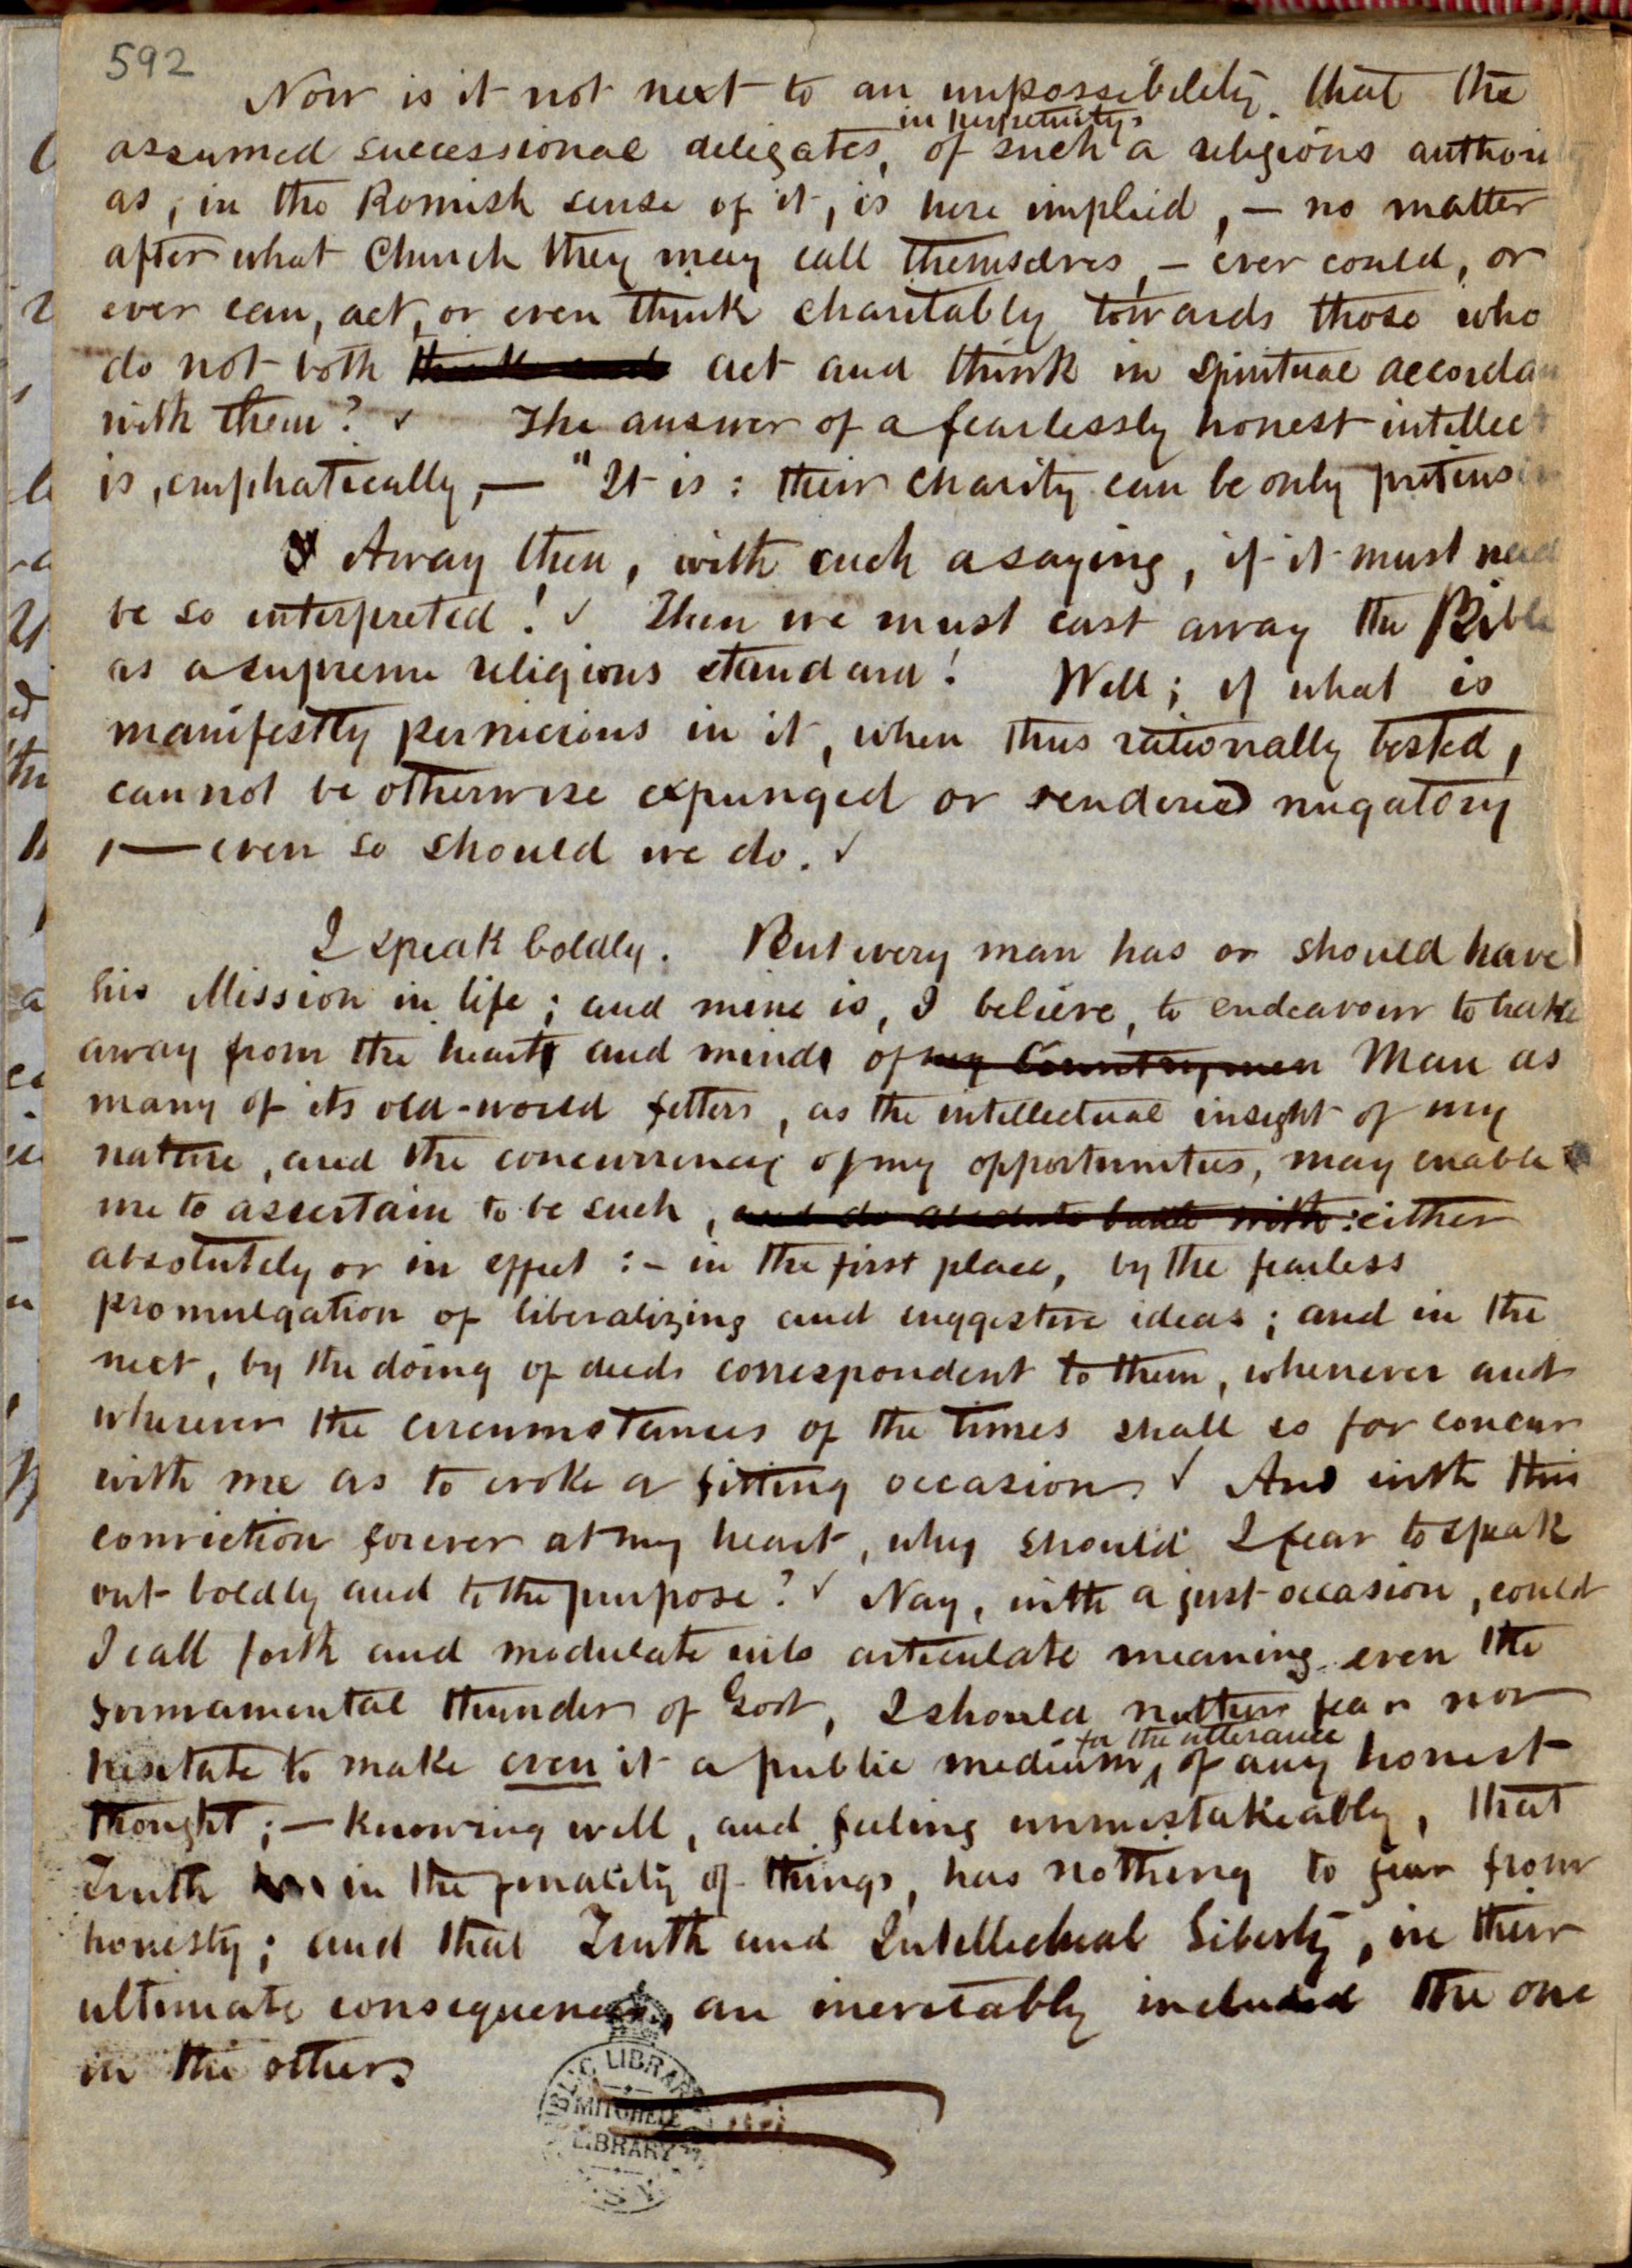 592
Now is it not next to an impossibility that the
in perpetuity,
assumed successional delegates, of such a religious authori
as, in the Romish sense of it, is here implied, — no matter
after what Church they may call themselves, — ever could, or
ever can, act, or even think charitably towards those who
do not both think and act and think in spiritual accordan
with them? ✓ The answer of a fearlessly honest intellect
is, emphatically, — "It is: their charity can be only pretens
Away then, with such a saying, if it must need
be so interpreted! ✓ Then we must cast away the Bible
as a supreme religious standard! Well; if what is
manifestly pernicious in it, when thus rationally tested,
cannot be otherwise expunged or rendered nugatory
, — even so should we do. ✓
I speak boldly. But every man has or should have
his Mission in life; and mine is, I believe, to endeavour to take
away from the heart and mind of my Countrymen Man as
many of its old-world fetters, as the intellectual insight of my
nature, and the concurrency of my opportunities, may enable
me to ascertain to be such, and do absolute battle with: either
absolutely or in effect: – in the first place, by the fearless
promulgation of liberalizing and suggestive ideas; and in the
next, by the doing of deeds correspondent to them, whenever and
wherever the circumstances of the times shall so far concur
with me as to evoke a fitting occasion. ✓ And with this
conviction forever at my heart, why should I fear to speak
out boldly and to the purpose? ✓ Nay, with a just occasion, could
I call forth and modulate into articulate meaning even the
firmamental thunder of God, I should neither fear nor
for the utterance
hesitate to make even it a public medium, of any honest
thought; — knowing well, and feeling unmistakeably, that
Truth in the finality of things, has nothing to fear from
honesty; and that Truth and Intellectual Liberty, in their
ultimate consequences, are inevitably included the one
in the other.
PUBLIC LIBRARY
MITCHELL
LIBRARY
N.S.W.